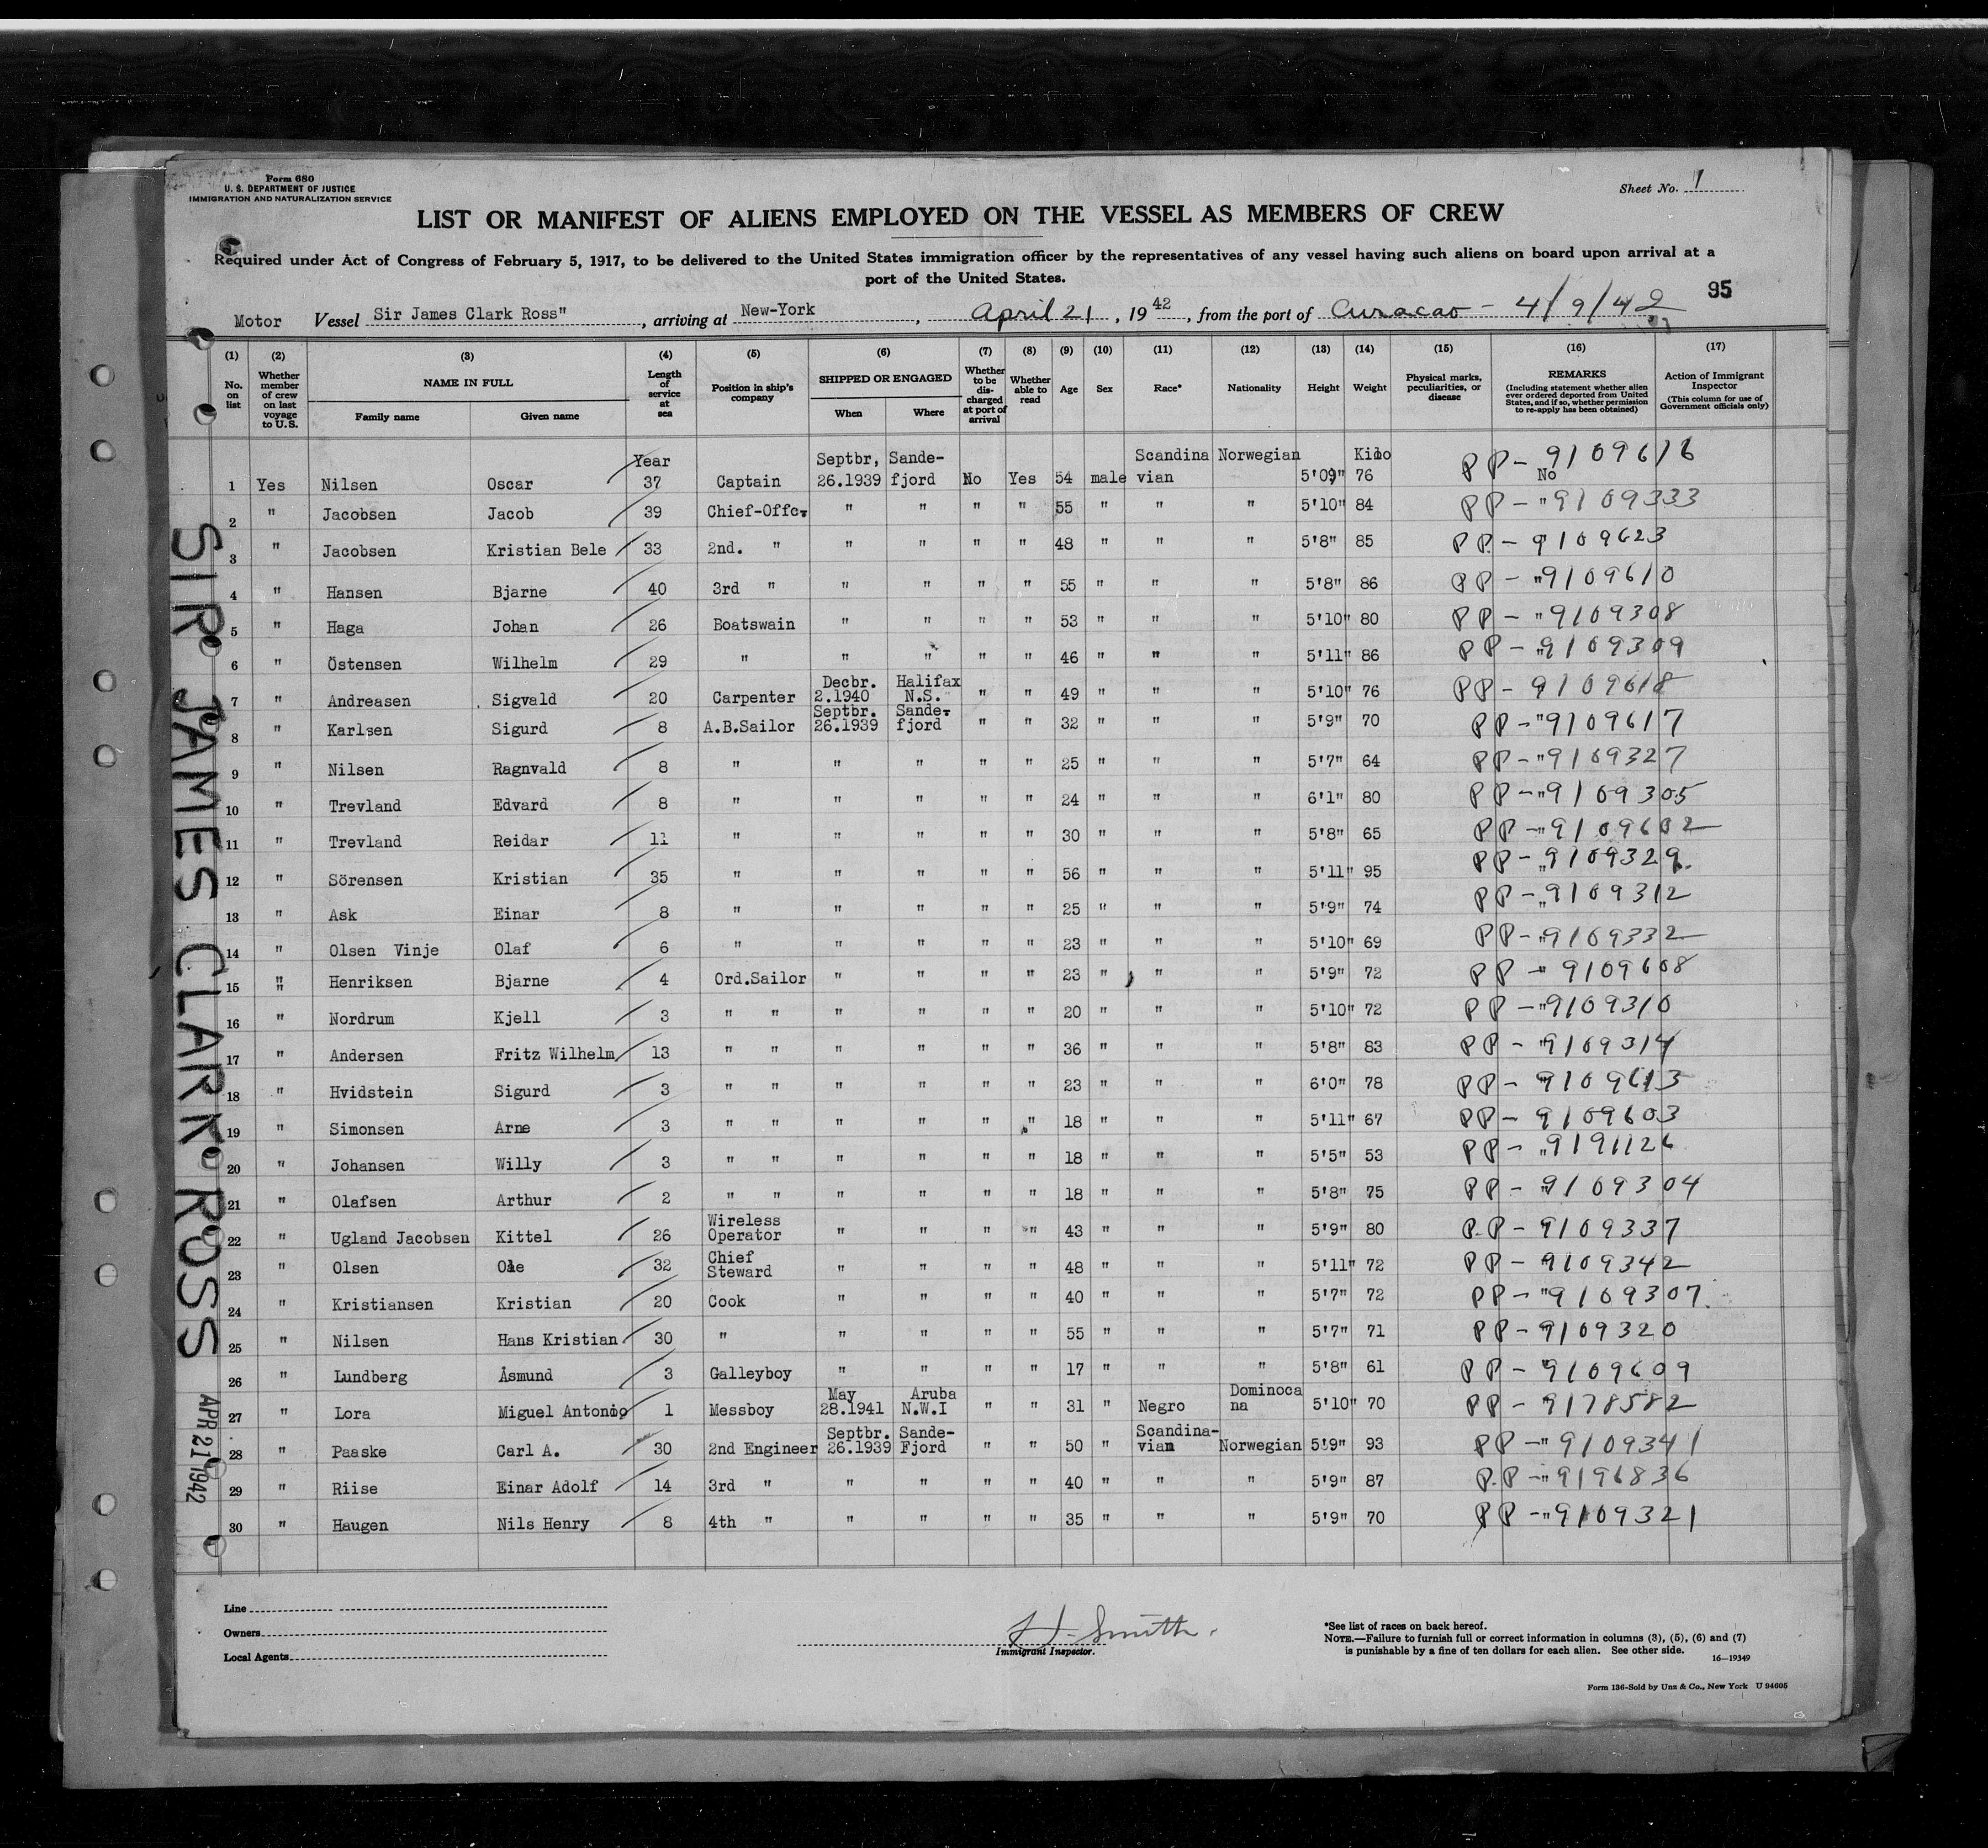 Form 680
U. S. DEPARTMENT OF JUSTICE
IMMIGRATION AND NATURALIZATION SERVICE
Sheet No. 1
LIST OR MANIFEST OF ALIENS EMPLOYED ON THE VESSEL AS MEMBERS OF CREW
Required under Act of Congress of February 5, 1917, to be delivered to the United States immigration officer by the representatives of any vessel having such aliens on board upon arrival at a
port of the United States.
95
Motor Vessel Sir James Clark Ross", arriving at New-York, April 21, 1942, from the port of Curacao - 4/9/42
(1) (2) (3) (4) (5) (6) (7) (8) (9) (10) (11) (12) (13) (14) (15) (16) (17)
No. on list
Whether member of crew on last voyage to U.S.
NAME IN FULL
Family name Given name
Length of service at sea
Position in ship's company
SHIPPED OR ENGAGED
When Where
Whether to be discharged at port of arrival
Whether able to read
Age Sex Race* Nationality Height Weight
Physical marks, peculiarities, or disease
REMARKS
(Including statement whether alien ever ordered deported from United States, and if so, whether permission to re-apply has been obtained)
Action of Immigrant Inspector
(This column for use of Government officials only)
Year Septbr, Sande- Scandina Norwegian Kilo
1 Yes Nilsen Oscar 37 Captain 26.1939 fjord No Yes 54 male vian 5'09" 76 PP - No 9109616
2 " Jacobsen Jacob 39 Chief-Offc. " " " " 55 " " " 5'10" 84 PP - " 9109333
3 " Jacobsen Kristian Bele 33 2nd. " " " " " 48 " " " 5'8" 85 PP - 9109623
4 " Hansen Bjarne 40 3rd " " " " " 55 " " " 5'8" 86 PP - " 9109610
5 " Haga Johan 26 Boatswain " " " " 53 " " " 5'10" 80 PP - " 9109308
6 " Östensen Wilhelm 29 " " " " " 46 " " " 5'11" 86 PP - " 9109309
Decbr. Halifax
7 " Andreasen Sigvald 20 Carpenter 2.1940 N.S. " " 49 " " " 5'10" 76 PP - 9109618
Septbr. Sande-
8 " Karlsen Sigurd 8 A.B.Sailor 26.1939 fjord " " 32 " " " 5'9" 70 PP - " 9109617
9 " Nilsen Ragnvald 8 " " " " " 25 " " " 5'7" 64 PP - " 9109327
10 " Trevland Edvard 8 " " " " " 24 " " " 6'1" 80 PP - " 9109305
11 " Trevland Reidar 11 " " " " " 30 " " " 5'8" 65 PP - " 9109602
12 " Sörensen Kristian 35 " " " " " 56 " " " 5'11" 95 PP - " 9109329
13 " Ask Einar 8 " " " " " 25 " " " 5'9" 74 PP - " 9109312
14 " Olsen Vinje Olaf 6 " " " " " 23 " " " 5'10" 69 PP - " 9109332
15 " Henriksen Bjarne 4 Ord.Sailor " " " " 23 " " " 5'9" 72 PP - " 9109608
16 " Nordrum Kjell 3 " " " " " " 20 " " " 5'10" 72 PP - " 9109310
17 " Andersen Fritz Wilhelm 13 " " " " " " 36 " " " 5'8" 83 PP - " 9109314
18 " Hvidstein Sigurd 3 " " " " " " 23 " " " 6'0" 78 PP - " 9109613
19 " Simonsen Arne 3 " " " " " " 18 " " " 5'11" 67 PP - 9109603
20 " Johansen Willy 3 " " " " " " 18 " " " 5'5" 53 PP - " 9191126
21 " Olafsen Arthur 2 " " " " " " 18 " " " 5'8" 75 PP - " 9109304
Wireless
22 " Ugland Jacobsen Kittel 26 Operator " " " " 43 " " " 5'9" 80 P.P - 9109337
Chief
23 " Olsen Ole 32 Steward " " " " 48 " " " 5'11" 72 PP - 9109342
24 " Kristiansen Kristian 20 Cook " " " " 40 " " " 5'7" 72 PP - " 9109307
25 " Nilsen Hans Kristian 30 " " " " " 55 " " " 5'7" 71 PP - 9109320
26 " Lundberg Åsmund 3 Galleyboy " " " " 17 " " " 5'8" 61 PP - 9109609
May Aruba Dominoca
27 " Lora Miguel Antonio 1 Messboy 28.1941 N.W.I " " 31 " Negro na 5'10" 70 PP - 9178582
Septbr. Sande- Scandina-
28 " Paaske Carl A. 30 2nd Engineer 26.1939 Fjord " " 50 " vian Norwegian 5'9" 93 PP - " 9109341
29 " Riise Einar Adolf 14 3rd " " " " " 40 " " " 5'9" 87 P.P - " 9196836
30 " Haugen Nils Henry 8 4th " " " " " 35 " " " 5'9" 70 PP - " 9109321
SIR JAMES CLARK ROSS
APR 21 1942
Line
Owners
Local Agents
H. Smith.
Immigrant Inspector.
*See list of races on back hereof.
NOTE.—Failure to furnish full or correct information in columns (3), (5), (6) and (7)
is punishable by a fine of ten dollars for each alien. See other side.
16—19349
Form 136-Sold by Unz & Co., New York U 94605